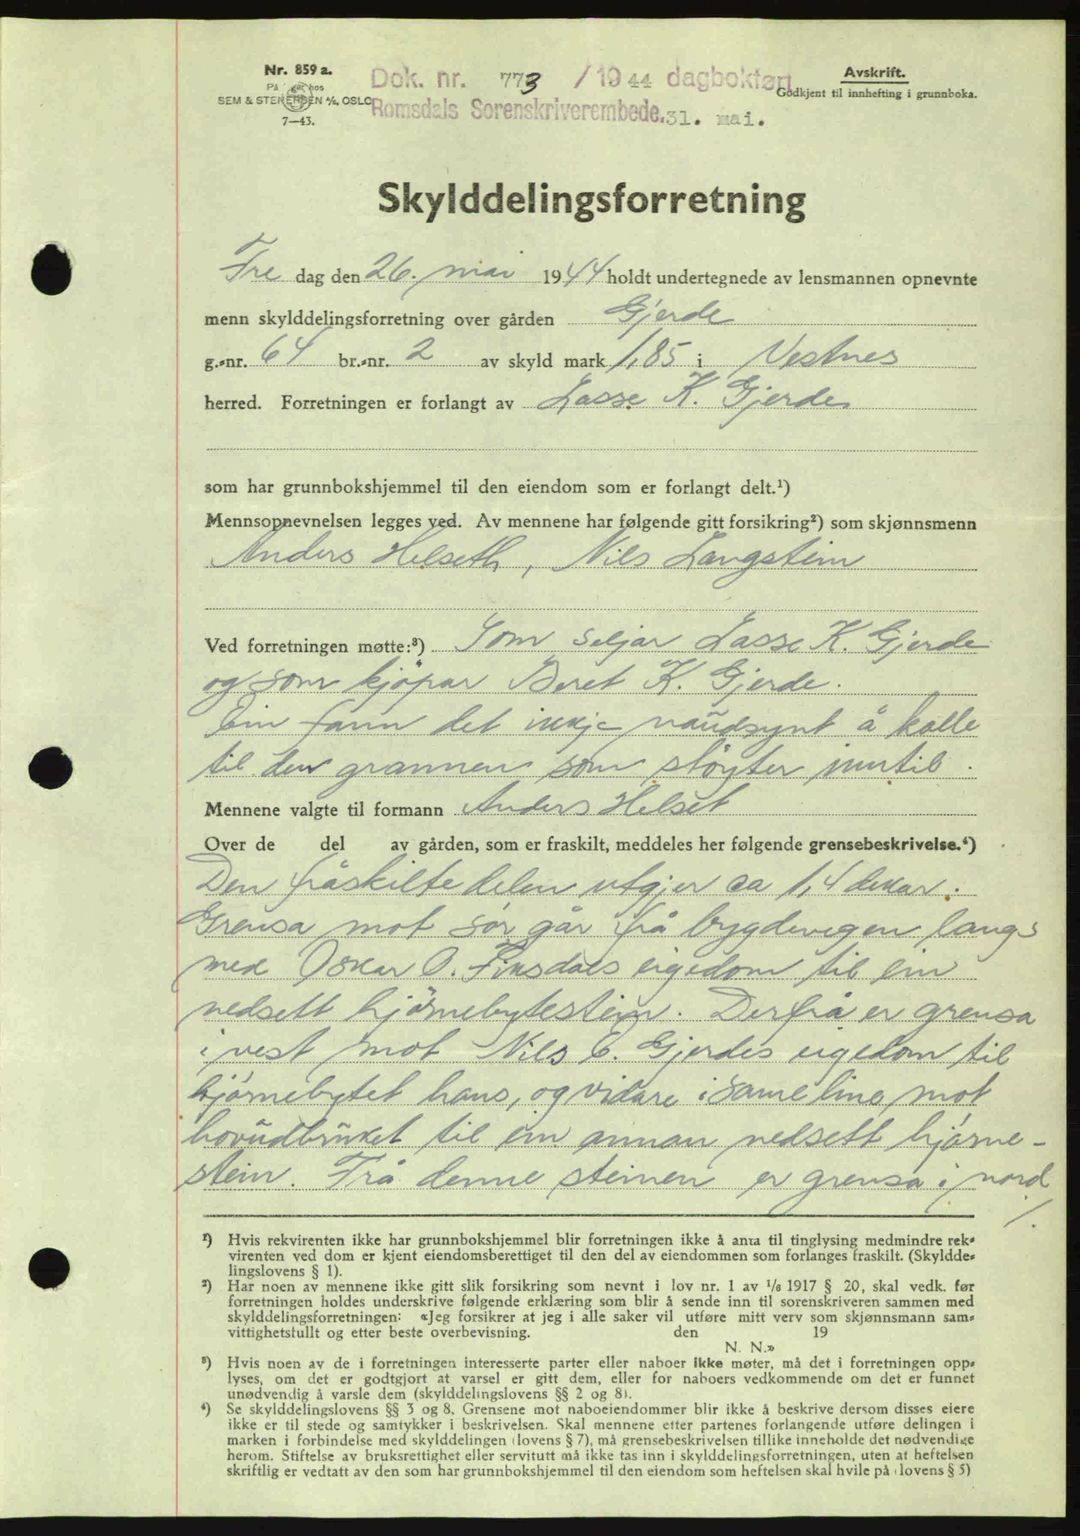 Nr. 859 a.
På lager hos
SEM & STENERSEN A/S, OSLO
7-43.
Dok. nr. 773 / 1944 dagbokført
Romsdals Sorenskriverembede. 31. mai.
Avskrift.
Godkjent til innhefting i grunnboka.
Skylddelingsforretning
Fre dag den 26. mai 1944 holdt undertegnede av lensmannen opnevnte
menn skylddelingsforretning over gården Gjerde
g.-nr. 64 br.-nr. 2 av skyld mark 1,85 i Vestnes
herred. Forretningen er forlangt av Lasse K. Gjerde
som har grunnbokshjemmel til den eiendom som er forlangt delt.¹)
Mennsopnevnelsen legges ved. Av mennene har følgende gitt forsikring²) som skjønnsmenn
Anders Helseth, Nils Langstein
Ved forretningen møtte:³) Som seljar Lasse K. Gjerde
og som kjöpar Beret K. Gjerde.
Ein fann det ikkje naudsynt å kalle
til den grannen som støyter inntil.
Mennene valgte til formann Anders Helset
Over de del av gården, som er fraskilt, meddeles her følgende grensebeskrivelse.⁴)
Den fråskilte delen utgjer ca 1,4 dekar.
Grensa mot sør går frå bygdevegen langs
med Oskar O. eigedom til ein
nedsett hjörnebytestein. Derfrå er grensa
i vest mot Nils E. Gjerdes eigedom til
hjörnebytet hans, og vidare i same lina mot
hovudbruket til ein annan nedsett hjørne-
stein. Frå denne steinen er grensa i nord
/.
¹) Hvis rekvirenten ikke har grunnbokshjemmel blir forretningen ikke å anta til tinglysing medmindre rek-
virenten ved dom er kjent eiendomsberettiget til den del av eiendommen som forlanges fraskilt. (Skyldde-
lingslovens § 1).
²) Har noen av mennene ikke gitt slik forsikring som nevnt i lov nr. 1 av ¹/₆ 1917 § 20, skal vedk. før
forretningen holdes underskrive følgende erklæring som blir å sende inn til sorenskriveren sammen med
skylddelingsforretningen: «Jeg forsikrer at jeg i alle saker vil utføre mitt verv som skjønnsmann sam-
vittighetsfullt og etter beste overbevisning. den 19
N. N.»
³) Hvis noen av de i forretningen interesserte parter eller naboer ikke møter, må det i forretningen opp-
lyses, om det er godtgjort at varsel er gitt dem, eller for naboers vedkommende om det er funnet
unødvendig å varsle dem (skylddelingslovens §§ 2 og 8).
⁴) Se skylddelingslovens §§ 3 og 8. Grensene mot naboeiendommer blir ikke å beskrive dersom disses eiere
ikke er til stede og samtykker i beskrivelsen. Skal mennene etter partenes forlangende utføre delingen i
marken i forbindelse med skylddelingen (lovens § 7), må grensebeskrivelsen tillike inneholde det nødvendige
herom. Stiftelse av bruksrettighet eller servitutt må ikke tas inn i skylddelingsforretningen, uten at heftelsen
skriftlig er vedtatt av den som har grunnbokshjemmel til den eiendom som heftelsen skal hvile på (lovens § 5)